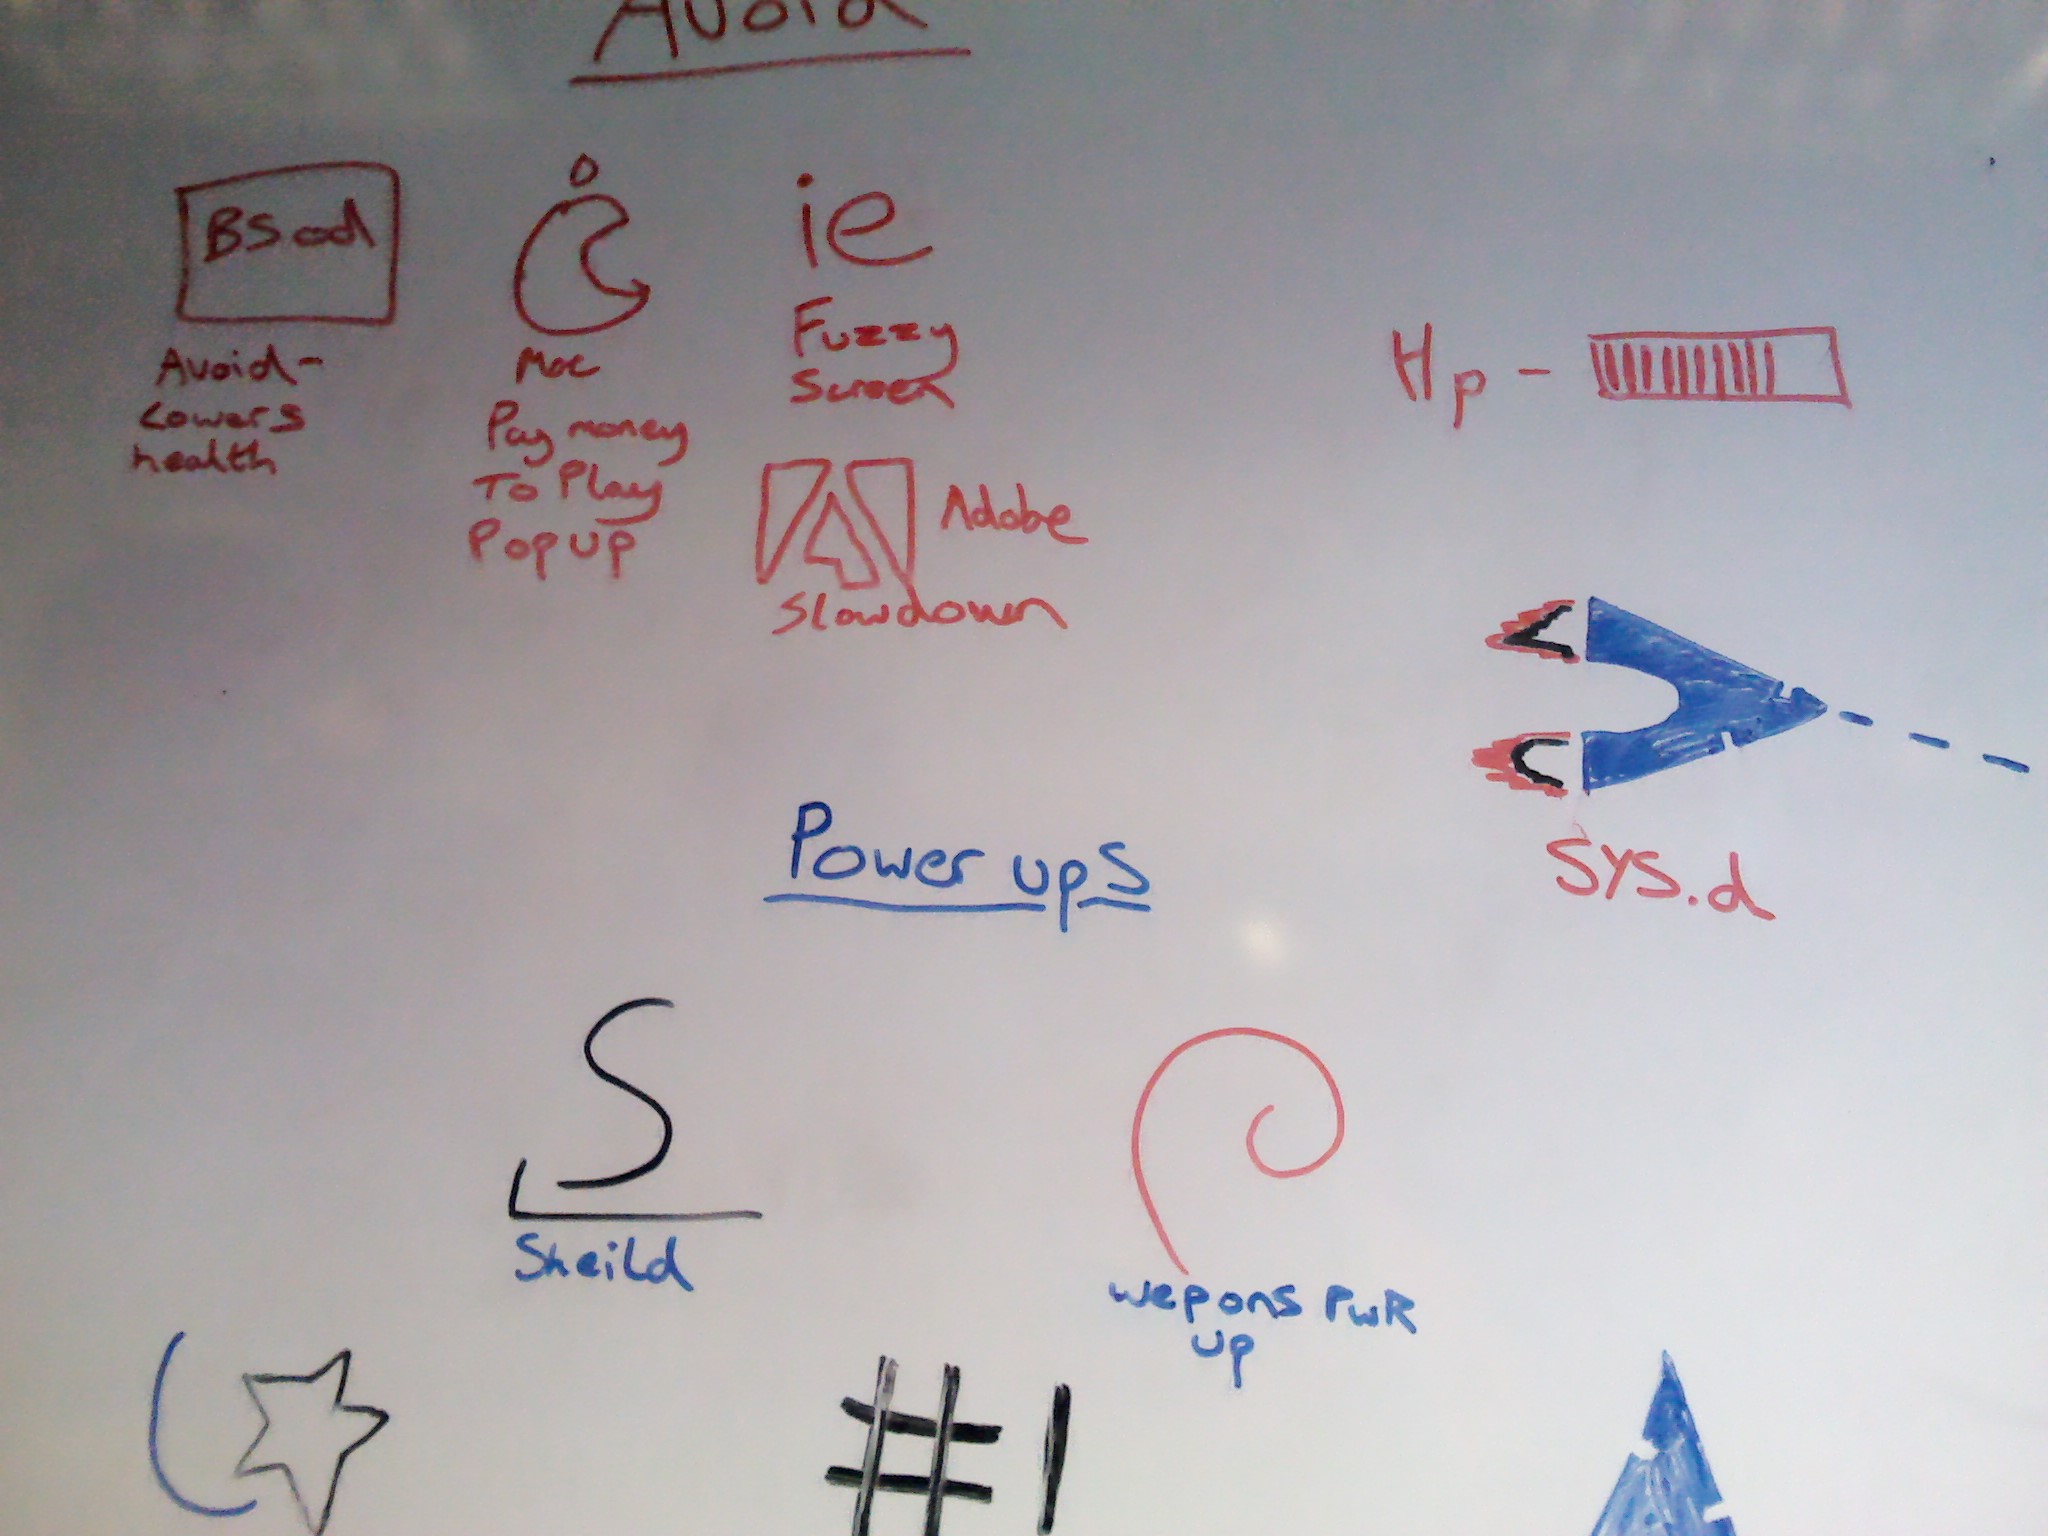 Avoid
BSod
Avoid-
Lowers
health
Mac
Pay money
To Play
Pop up
ie
Fuzzy
Screen
Adobe
Slowdown
Hp -
SYS.d
Power ups
S
Sheild
wepons PWR
up
#1